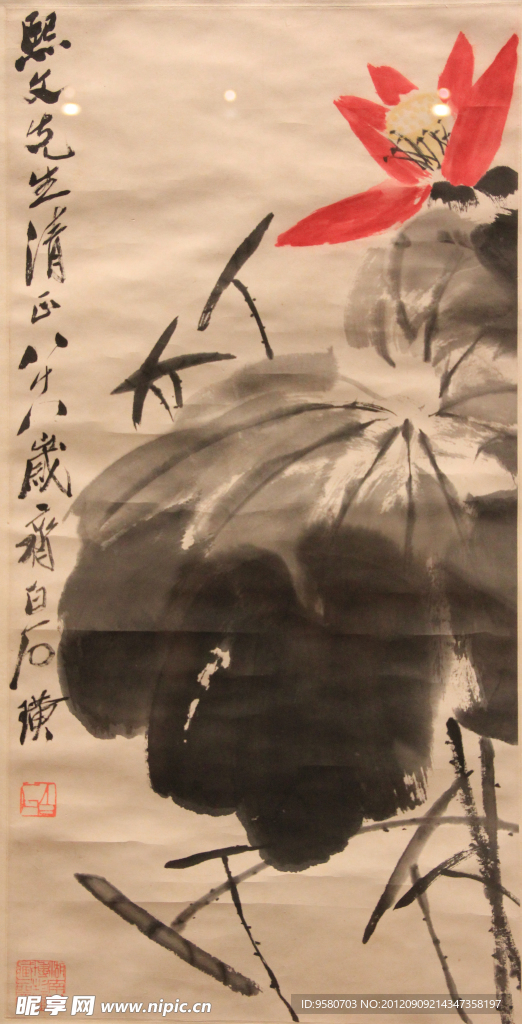 熙文先生清正八十八歲齊白石璜
昵享网 www.nipic.cn
ID:9580703 NO:20120909214347358197